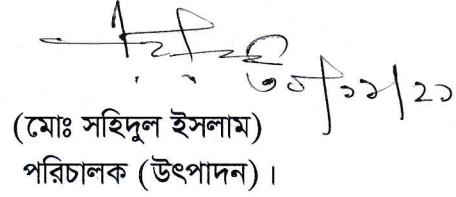 ৩০/১১/২১
(মোঃ সহিদুল ইসলাম)
পরিচালক (উৎপাদন)।